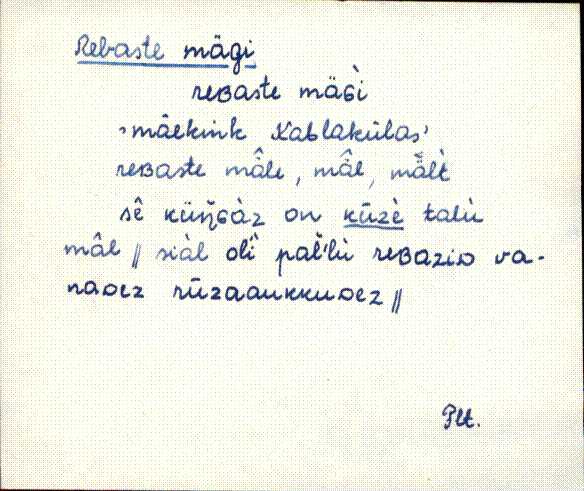 Rebaste mägi
reʙaste mäɢ̀i
›mäekink Kablakülas‹
reʙaste mâle, mâl, mǟlt̀
sê küŋ̆ɢàz on kūzè talù
mâl ‖ siàl olì pal̆'lù reʙaziᴅ va-
naᴅez rūzaaukkuᴅez ‖
Plt.